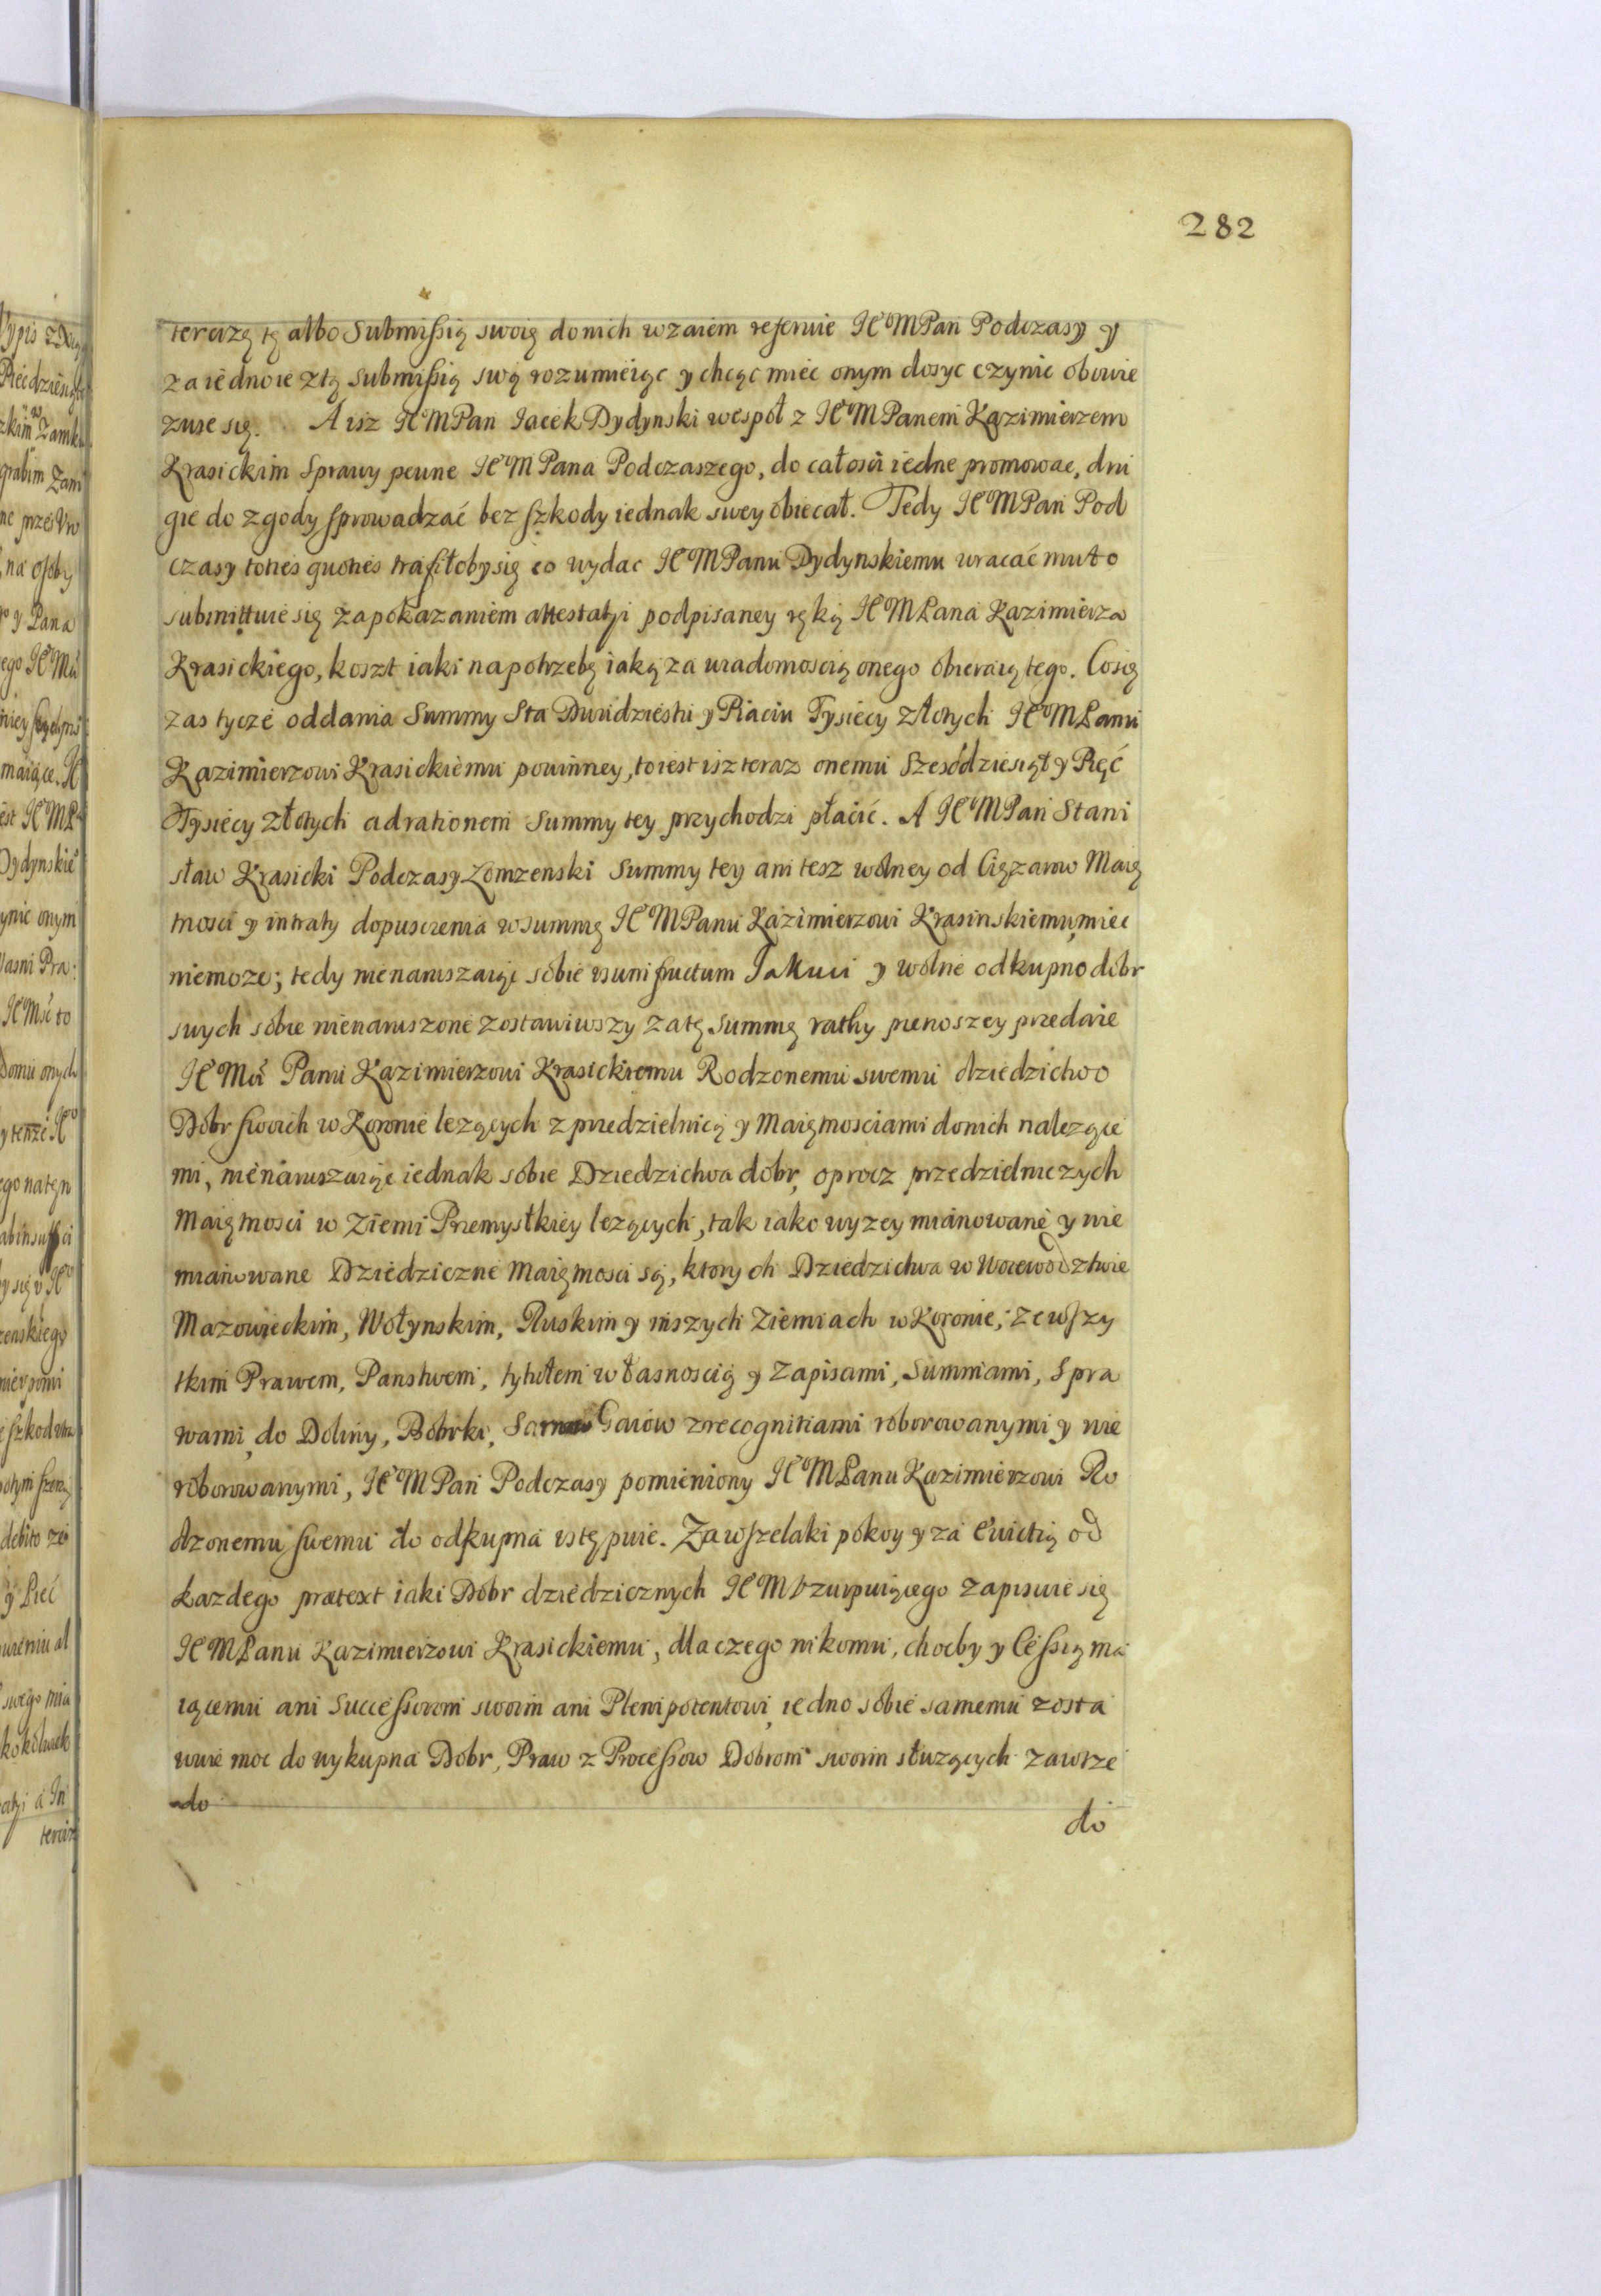 282
tercizę tę albo Submissią swoię donich wzaiem referuie JE°MPan Podczasy y
za iednoie ztą submissią swą rozumieiąc y chcąc miec onym dosyc czynic obowie
zuie się. A isz JE°MPan Jacek Dydynski wespoł z JE°MPanem Kazimierzem
Krasickim Sprawy pewne JE°MPana Podczaszego, do całosci iedne promowac, dru
gie do zgody sprowadzać bez szkody iednak swey obiecał. Tedy JE°MPan Pod
czasy toties quoties trafiłoby się co wydac JE°MPanu Dydynskiemu wracać mu to
submittuie się za pokazaniem attestatyi podpisaney ręką JE°MPana Kazimierza
Krasickiego, koszt iaki na potrzebę iaką za wiadomoscią onego obieraią tego. Cosię
zas tycze oddania Summy Sta Dwudziestu y Piaciu Tysiecy złotych JE°MPanu
Kazimierzowi Krasickiemu powinney, toiest isz teraz onemu Szesćdziesiąt y Pięć
Tysiecy złotych ad rationem Summy tey przychodzi płacić. A JE°MPan Stani
sław Krasicki Podczasy Łomzenski Summy tey ani tesz wolney od Cięzarow Maię
tnosci y intraty dopuscienia w summę JE°MPanu Kazimierzowi Krasinskiemu, miec
niemoze; tedy nienaruszaiąc sobie usumfructum y wolne odkupno dobr
swych sobie nienaruszone zostawiwszy za tę summę rathy pierwszey przedaie
JE°Mci Panu Kazimierzowi Krasickiemu Rodzonemu swemu dziedzictwo
Dobr swoich w Koronie lezących z przedzielnicą y Maiętnosciami donich nalezące
mi, nienaruszaiąc iednak sobie Dziedzictwa dobr, oprocz przedzielniczych
Maiętnosci w Ziemi Przemyskiey lezących, tak iako wyzey mianowane y nie
mianowane Dziedziczne Maiętnosci są, ktorych Dziedzictwa w Woiewodztwie
Mazowieckim, Wołynskim, Ruskim y inszych Ziemiach w Koronie, ze wszy
tkim Prawem, Panstwem, tytułem własnoscią y Zapisami, Summami, Spra
wami, do Doliny, Bobrki, Gaiow z recognitiami roborowanymi y nie
roborowanymi, JE°MPan Podczasy pomieniony JE°MPanu Kazimierzowi Ro
dzonemu swemu do odkupna ustępuie. Za wszelaki pokoy y za Ewictią od
kazdego prætext iaki Dobr dziedzicznych JE°M uzurpuiącego zapisuie się
JE°MPanu Kazimierzowi Krasickiemu, dla czego nikomu, chocby y Cessią ma
iącemu ani Successorom swoim ani Plenipotentowi, iedno sobie samemu zosta
wuie moc do wykupna Dobr, Praw z Processow Dobrom swoim słuzących zawrze
do
do